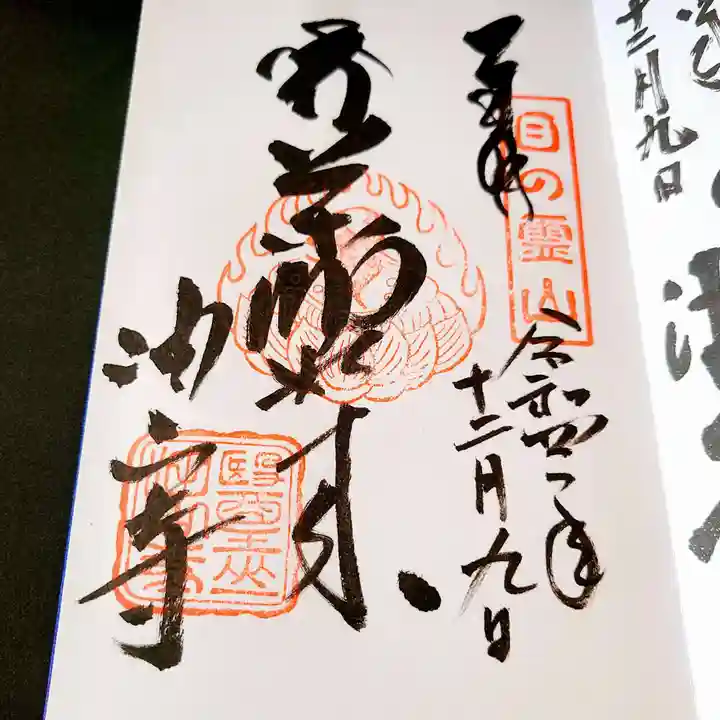 奉拝
目の霊山
令和四年
十二月九日
薬師如来
油山寺
十二月九日